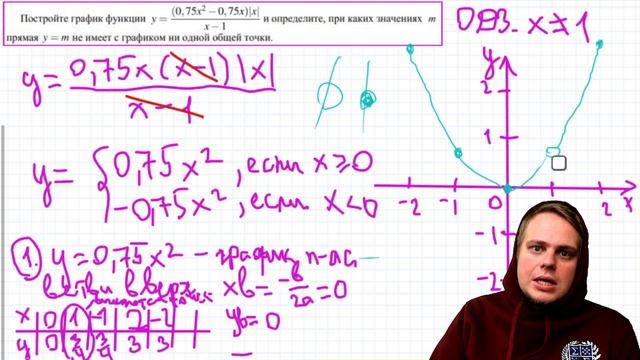 Постройте график функции y = (0,75x² − 0,75x)|x| / x − 1 и определите, при каких значениях m
прямая y = m не имеет с графиком ни одной общей точки.
ОДЗ. x ≠ 1
y = 0,75x(x−1)|x| / x−1
y = { 0,75x², если x ≥ 0
−0,75x², если x < 0
1. y = 0,75x² – график п-ла
ветви вверх xв = −b/2a = 0
x 0 1 −1 2 −2
yв = 0
y 0 3/4 3/4 3 3
y
2
1
−2 −1 0 1 2 x
−1
−2